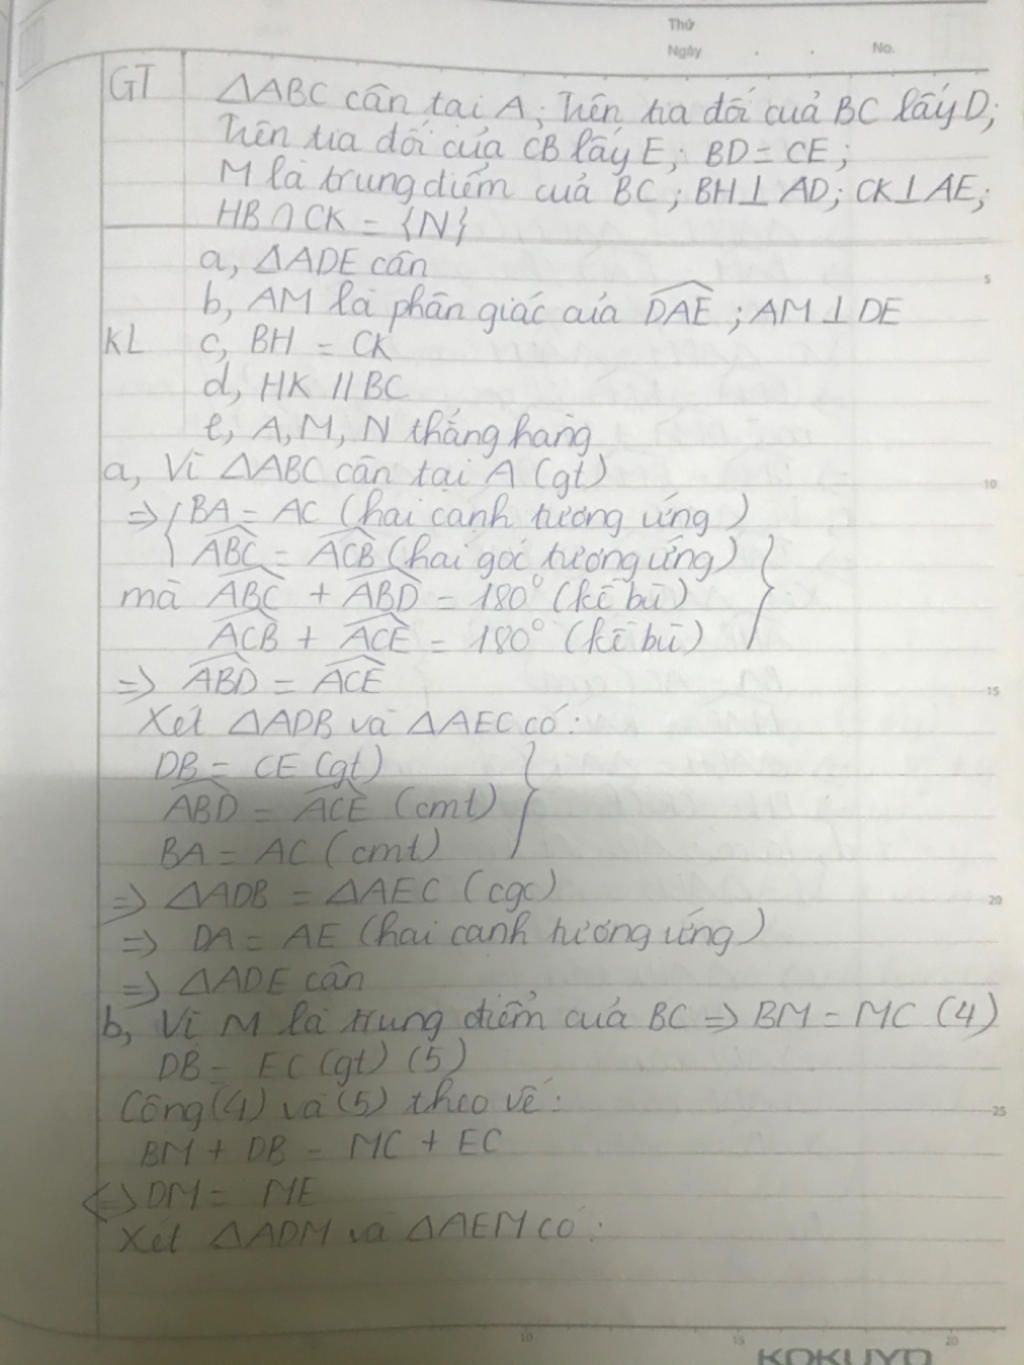 Thứ
Ngày . . No.
GT ΔABC cân tại A; Trên tia đối của BC lấy D;
Trên tia đối của CB lấy E; BD = CE;
M là trung điểm của BC; BH⊥AD; CK⊥AE;
HB∩CK = {N}
a, ΔADE cân
5
b, AM là phân giác của \widehat{DAE}; AM ⊥ DE
KL c, BH = CK
d, HK // BC
e, A, M, N thẳng hàng
a, Vì ΔABC cân tại A (gt)
10
=> { BA = AC (hai cạnh tương ứng)
\widehat{ABC} = \widehat{ACB} (hai góc tương ứng) }
mà \widehat{ABC} + \widehat{ABD} = 180° (kề bù)
\widehat{ACB} + \widehat{ACE} = 180° (kề bù)
=> \widehat{ABD} = \widehat{ACE}
15
Xét ΔADB và ΔAEC có:
DB = CE (gt) }
\widehat{ABD} = \widehat{ACE} (cmt)
BA = AC (cmt)
=> ΔADB = ΔAEC (cgc)
20
=> DA = AE (hai cạnh tương ứng)
=> ΔADE cân
b, Vì M là trung điểm của BC => BM = MC (4)
DB = EC (gt) (5)
Cộng (4) và (5) theo vế:
25
BM + DB = MC + EC
<=> DM = ME
Xét ΔADM và ΔAEM có:
10 15 20
KOKUYO